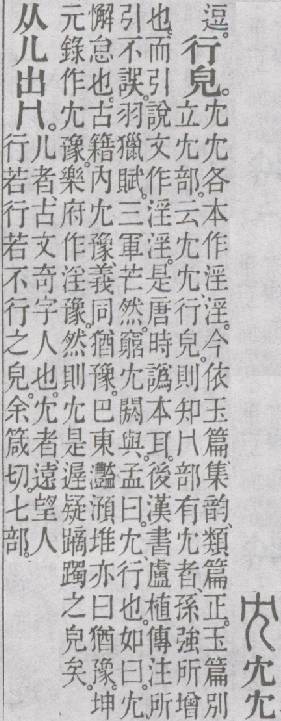 冘冘
逗。行皃。冘冘各本作淫淫。今依玉篇集韵類篇正。玉篇別
立冘部。云冘冘行皃。則知冂部有冘者、孫強所增
也。而引說文作淫淫。是唐時譌本耳。後漢書盧植傳注所
引不誤。羽獵賦。三軍芒然。竆冘閼與。孟曰。冘行也。如曰。冘
懈怠也。古籍內冘豫、義同猶豫。巴東灩澦堆亦曰猶豫。坤
元錄作冘豫。樂府作淫豫。然則冘是遟疑蹢躅之皃矣。
从儿出冂。儿者古文奇字人也。冘者遠望人
行若行若不行之皃。余箴切。七部。